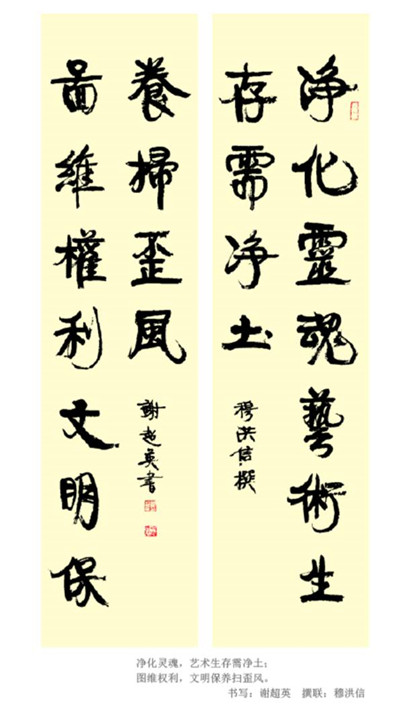 净化靈魂藝術生
存需净土
穆洪信撰
圖維權利文明保
養掃歪風
謝超英書
净化灵魂，艺术生存需净土；
图维权利，文明保养扫歪风。
书写：谢超英 撰联：穆洪信